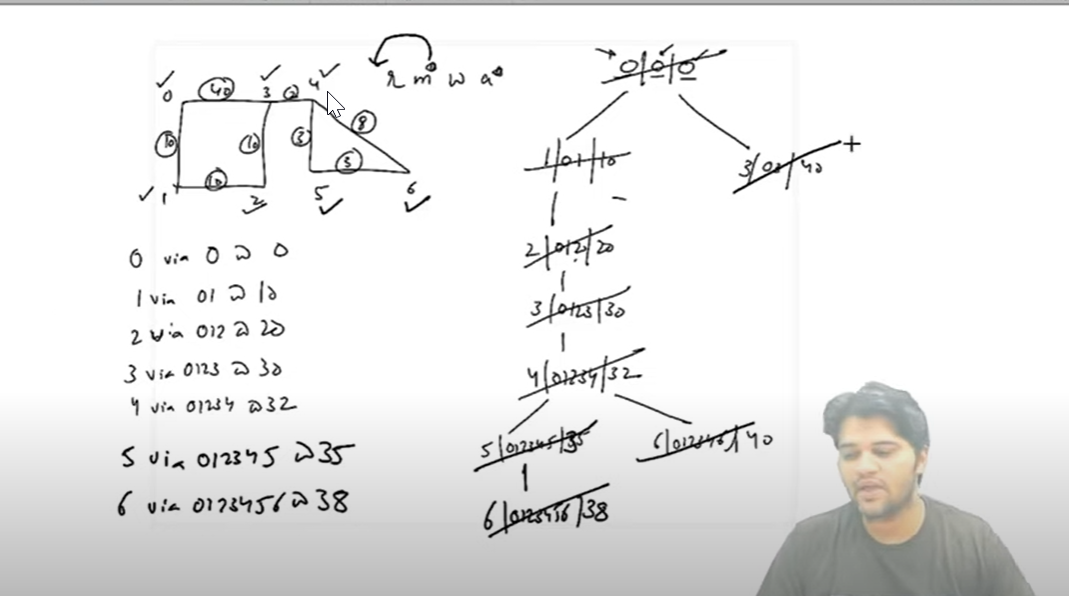 0 40 3 2 4
r m* w a*
10 10 3 8
10 3
1 2 5 6
0 via 0 @ 0
1 via 01 @ 10
2 via 012 @ 20
3 via 0123 @ 30
4 via 01234 @ 32
5 via 012345 @ 35
6 via 0123456 @ 38
0|0|0
1|01|10
3|03|40 +
2|012|20
3|0123|30
4|01234|32
5|012345|35
6|012346|40
6|0123456|38